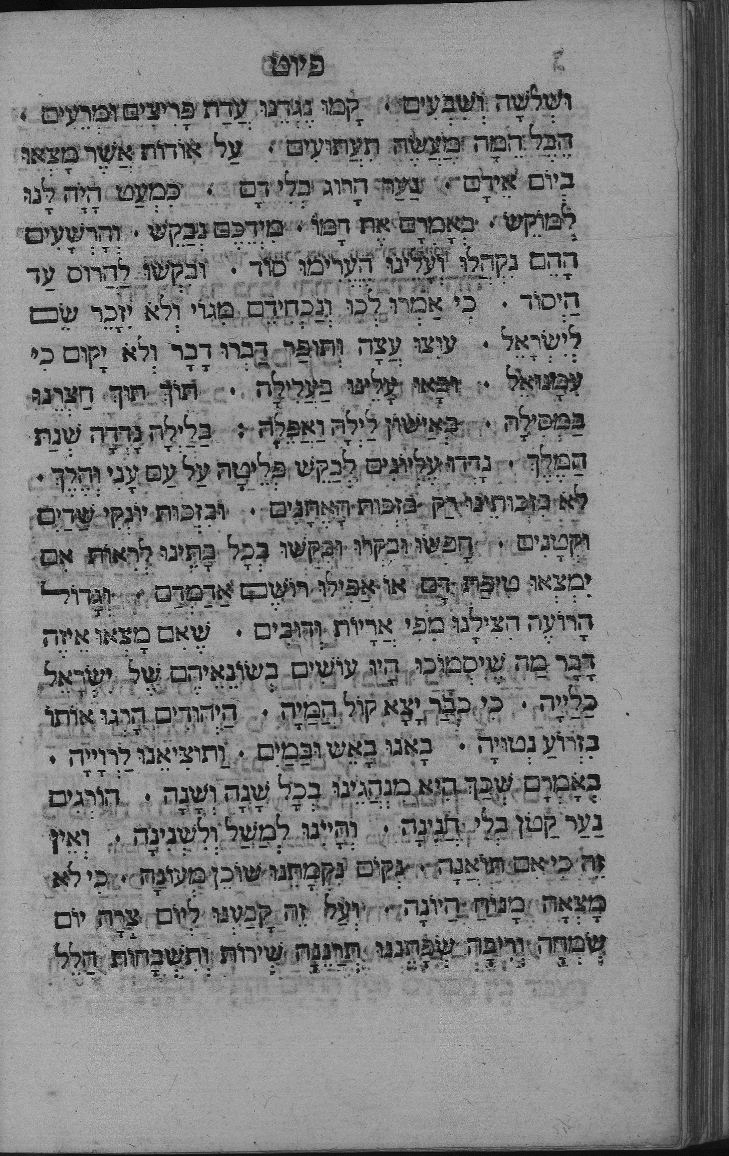 פיוט
וּשְׁלשָׁה וְשִׁבְעִים . קָמוּ נֶגְדֵנוּ עֲדַת פָּרִיצִים וּמְרֵעִים .
הֶבֶל הֵמָּה מַעֲשֵׂה תַּעְתּוּעִים . עַל אוֹדוֹת אֲשֶׁר מָצְאוּ
בְּיוֹם אֵידָם . נַעַר הָרוּג בְּלִי דָם . כִּמְעַט הָיָה לָנוּ
לְמוֹקֵשׁ . בְּאָמְרָם אֶת דָּמוֹ . מִיֶּדְכֶם נְבַקֵּשׁ . וְהָרְשָׁעִים
הָהֵם נִקְהֲלוּ וְעָלֵינוּ הֶעֱרִימוּ סוֹד . וּבִקְשׁוּ לַהֲרוֹס עַד
הַיְסוֹד . כִּי אָמְרוּ לְכוּ וְנַכְחִידֵם מִגּוֹי וְלֹא יִזָּכֵר שֵׁם
לְיִשְׂרָאֵל . עוּצוּ עֵצָה וְתוּפַר דַּבְּרוּ דָבָר וְלֹא יָקוּם כִּי
עִמָּנוּאֵל . וּבָאוּ עָלֵינוּ בַּעֲלִילָה . תּוֹךְ תּוֹךְ חַצְרֵנוּ
בַּמְסִילָה . בְּאִישׁוֹן לַיְלָה וַאֲפֵלָה : בַּלַּיְלָה נָדְדָה שְׁנַת
הַמֶּלֶךְ . נָדְדוּ עֶלְיוֹנִים לְבַקֵּשׁ פְּלֵיטָה עַל עַם עָנִי וְהֵלֶךְ .
לֹא בִּזְכוּתֵינוּ רַק בִּזְכוּת הָאֵתָנִים . וּבִזְכוּת יוֹנְקֵי שָׁדַיִם
וּקְטַנִּים . חָפְשׂוּ וּבִקְרוּ וּבִקְשׁוּ בְּכָל בָּתֵּינוּ לִרְאוֹת אִם
יִמְצְאוּ טִיפַּת דָּם אוֹ אֲפִילוּ רוֹשֶׁם אֲדַמְדַּם . וְגָדוֹל
הָרוֹעֶה הִצִּילָנוּ מִפִּי אֲרָיוֹת וְדוּבִּים . שֶׁאִם מָצְאוּ אֵיזֶה
דָּבָר מַה שֶּׁיִּסְמוֹכוּ הָיוּ עוֹשִׂים בְּשׂוֹנְאֵיהֶם שֶׁל יִשְׂרָאֵל
כְּלָיָיה . כִּי כְבָר יָצָא קוֹל הֲמִיָּה . הַיְּהוּדִים הָרְגוּ אוֹתוֹ
בִּזְרוֹעַ נְטוּיָה . בָּאנוּ בָאֵשׁ וּבַמַּיִם . וַתּוֹצִיאֵנוּ לָרְוָיָיה .
בְּאָמְרָם שֶׁכַּךְ הִיא מִנְהָגֵינוּ בְּכָל שָׁנָה וְשָׁנָה . הוֹרְגִים
נַעַר קָטֹן בְּלִי חֲנִינָה . וְהָיִינוּ לְמָשָׁל וְלִשְׁנִינָה . וְאֵין
זֶה כִּי אִם תּוֹאֲנָה . נְקוֹם נִקְמָתֵנוּ שׁוֹכֵן מְעוֹנָה . כִּי לֹא
מָצְאָה מָנוֹחַ הַיּוֹנָה . וְעַל זֶה קָבַעְנוּ לְיוֹם צָרָה יוֹם
שִׂמְחָה שְׂפָתֵנוּ תְּרַנֵּנָה שִׁירוֹת וְתִשְׁבָּחוֹת הַלֵּל